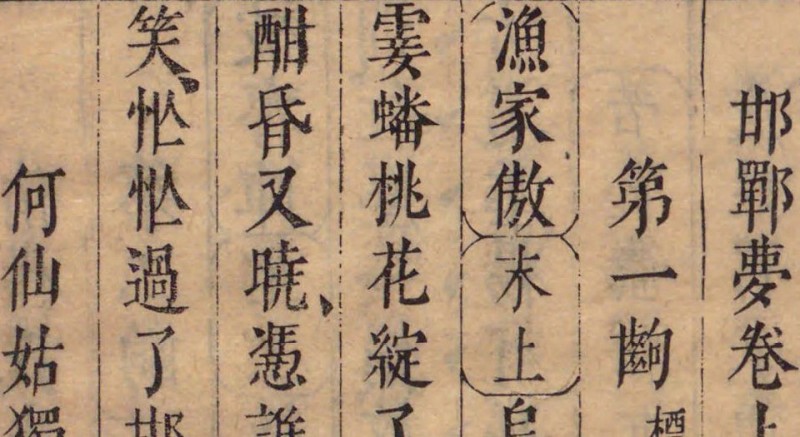 邯鄲夢卷上
第一齣
漁家傲末上
霎蟠桃花綻了
酣昏又曉、憑誰
笑、忙忙過了邯
何仙姑獨